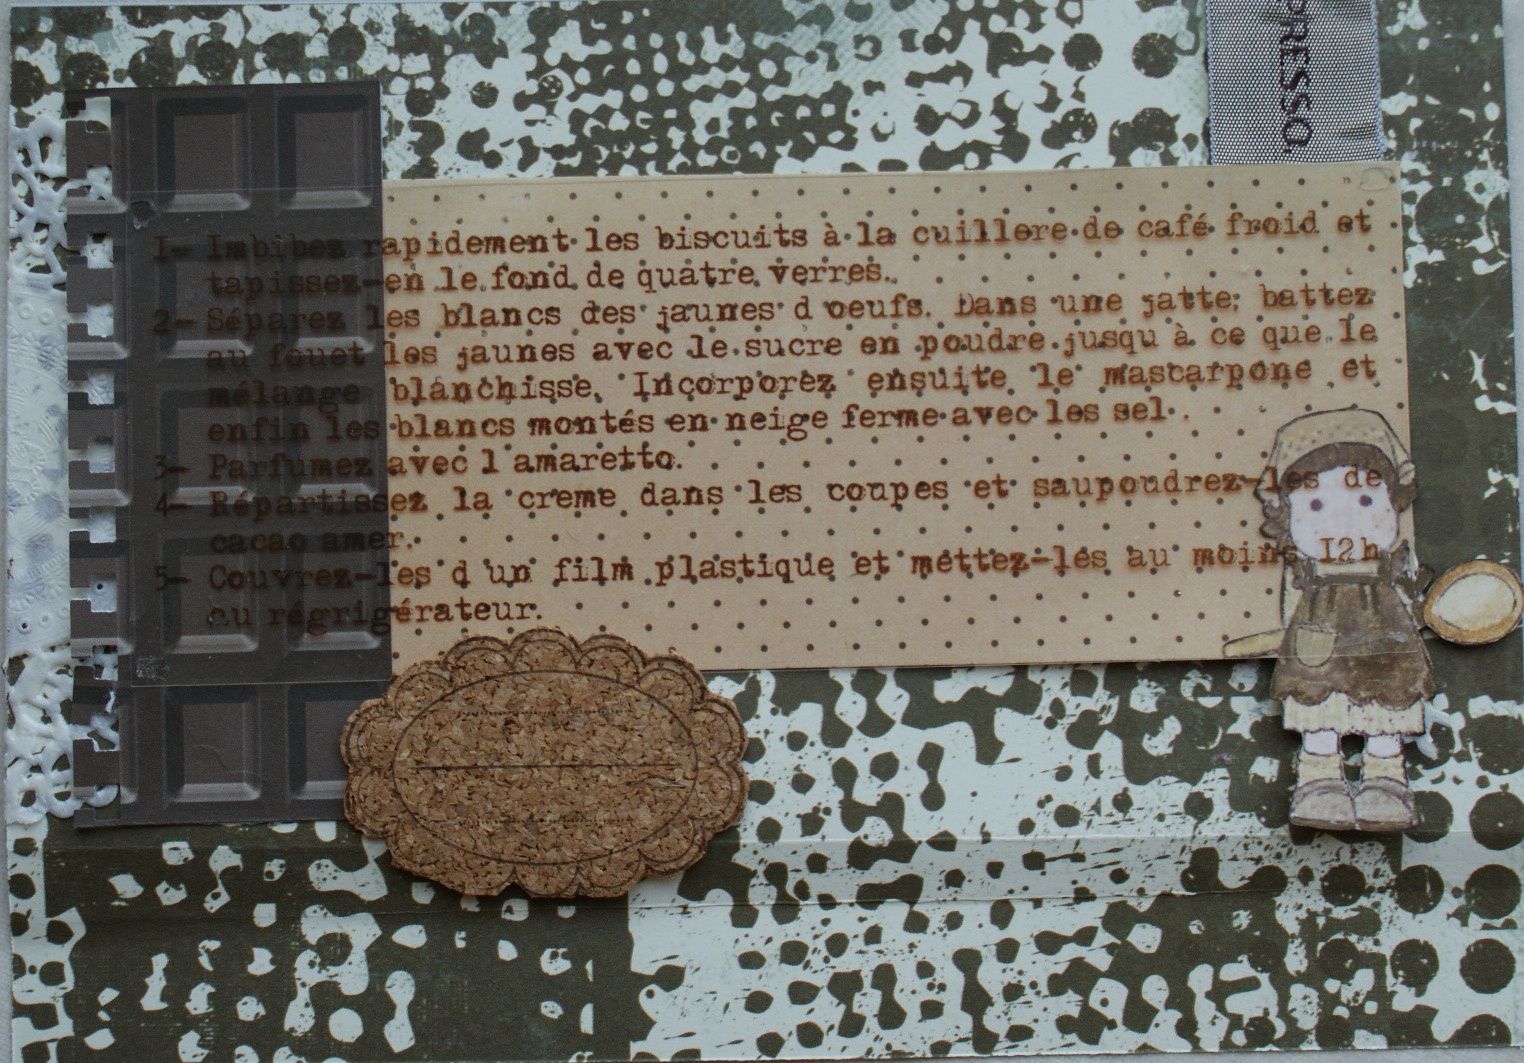 PRESSO.
I- Imbibez rapidement les biscuits à la cuillere de café froid et
tapissez-en le fond de quatre verres.
2- Séparez les blancs des jaunes d oeufs. Dans une jatte, battez
au fouet les jaunes avec le sucre en poudre jusqu à ce que le
mélange blanchisse. Incorporez ensuite le mascarpone et
enfin les blancs montés en neige ferme avec les sel.
3- Parfumez avec l amaretto.
4- Répartissez la creme dans les coupes et saupoudrez-les de
cacao amer.
5- Couvrez-les d un film plastique et mettez-les au moins I2h
au régrigérateur.